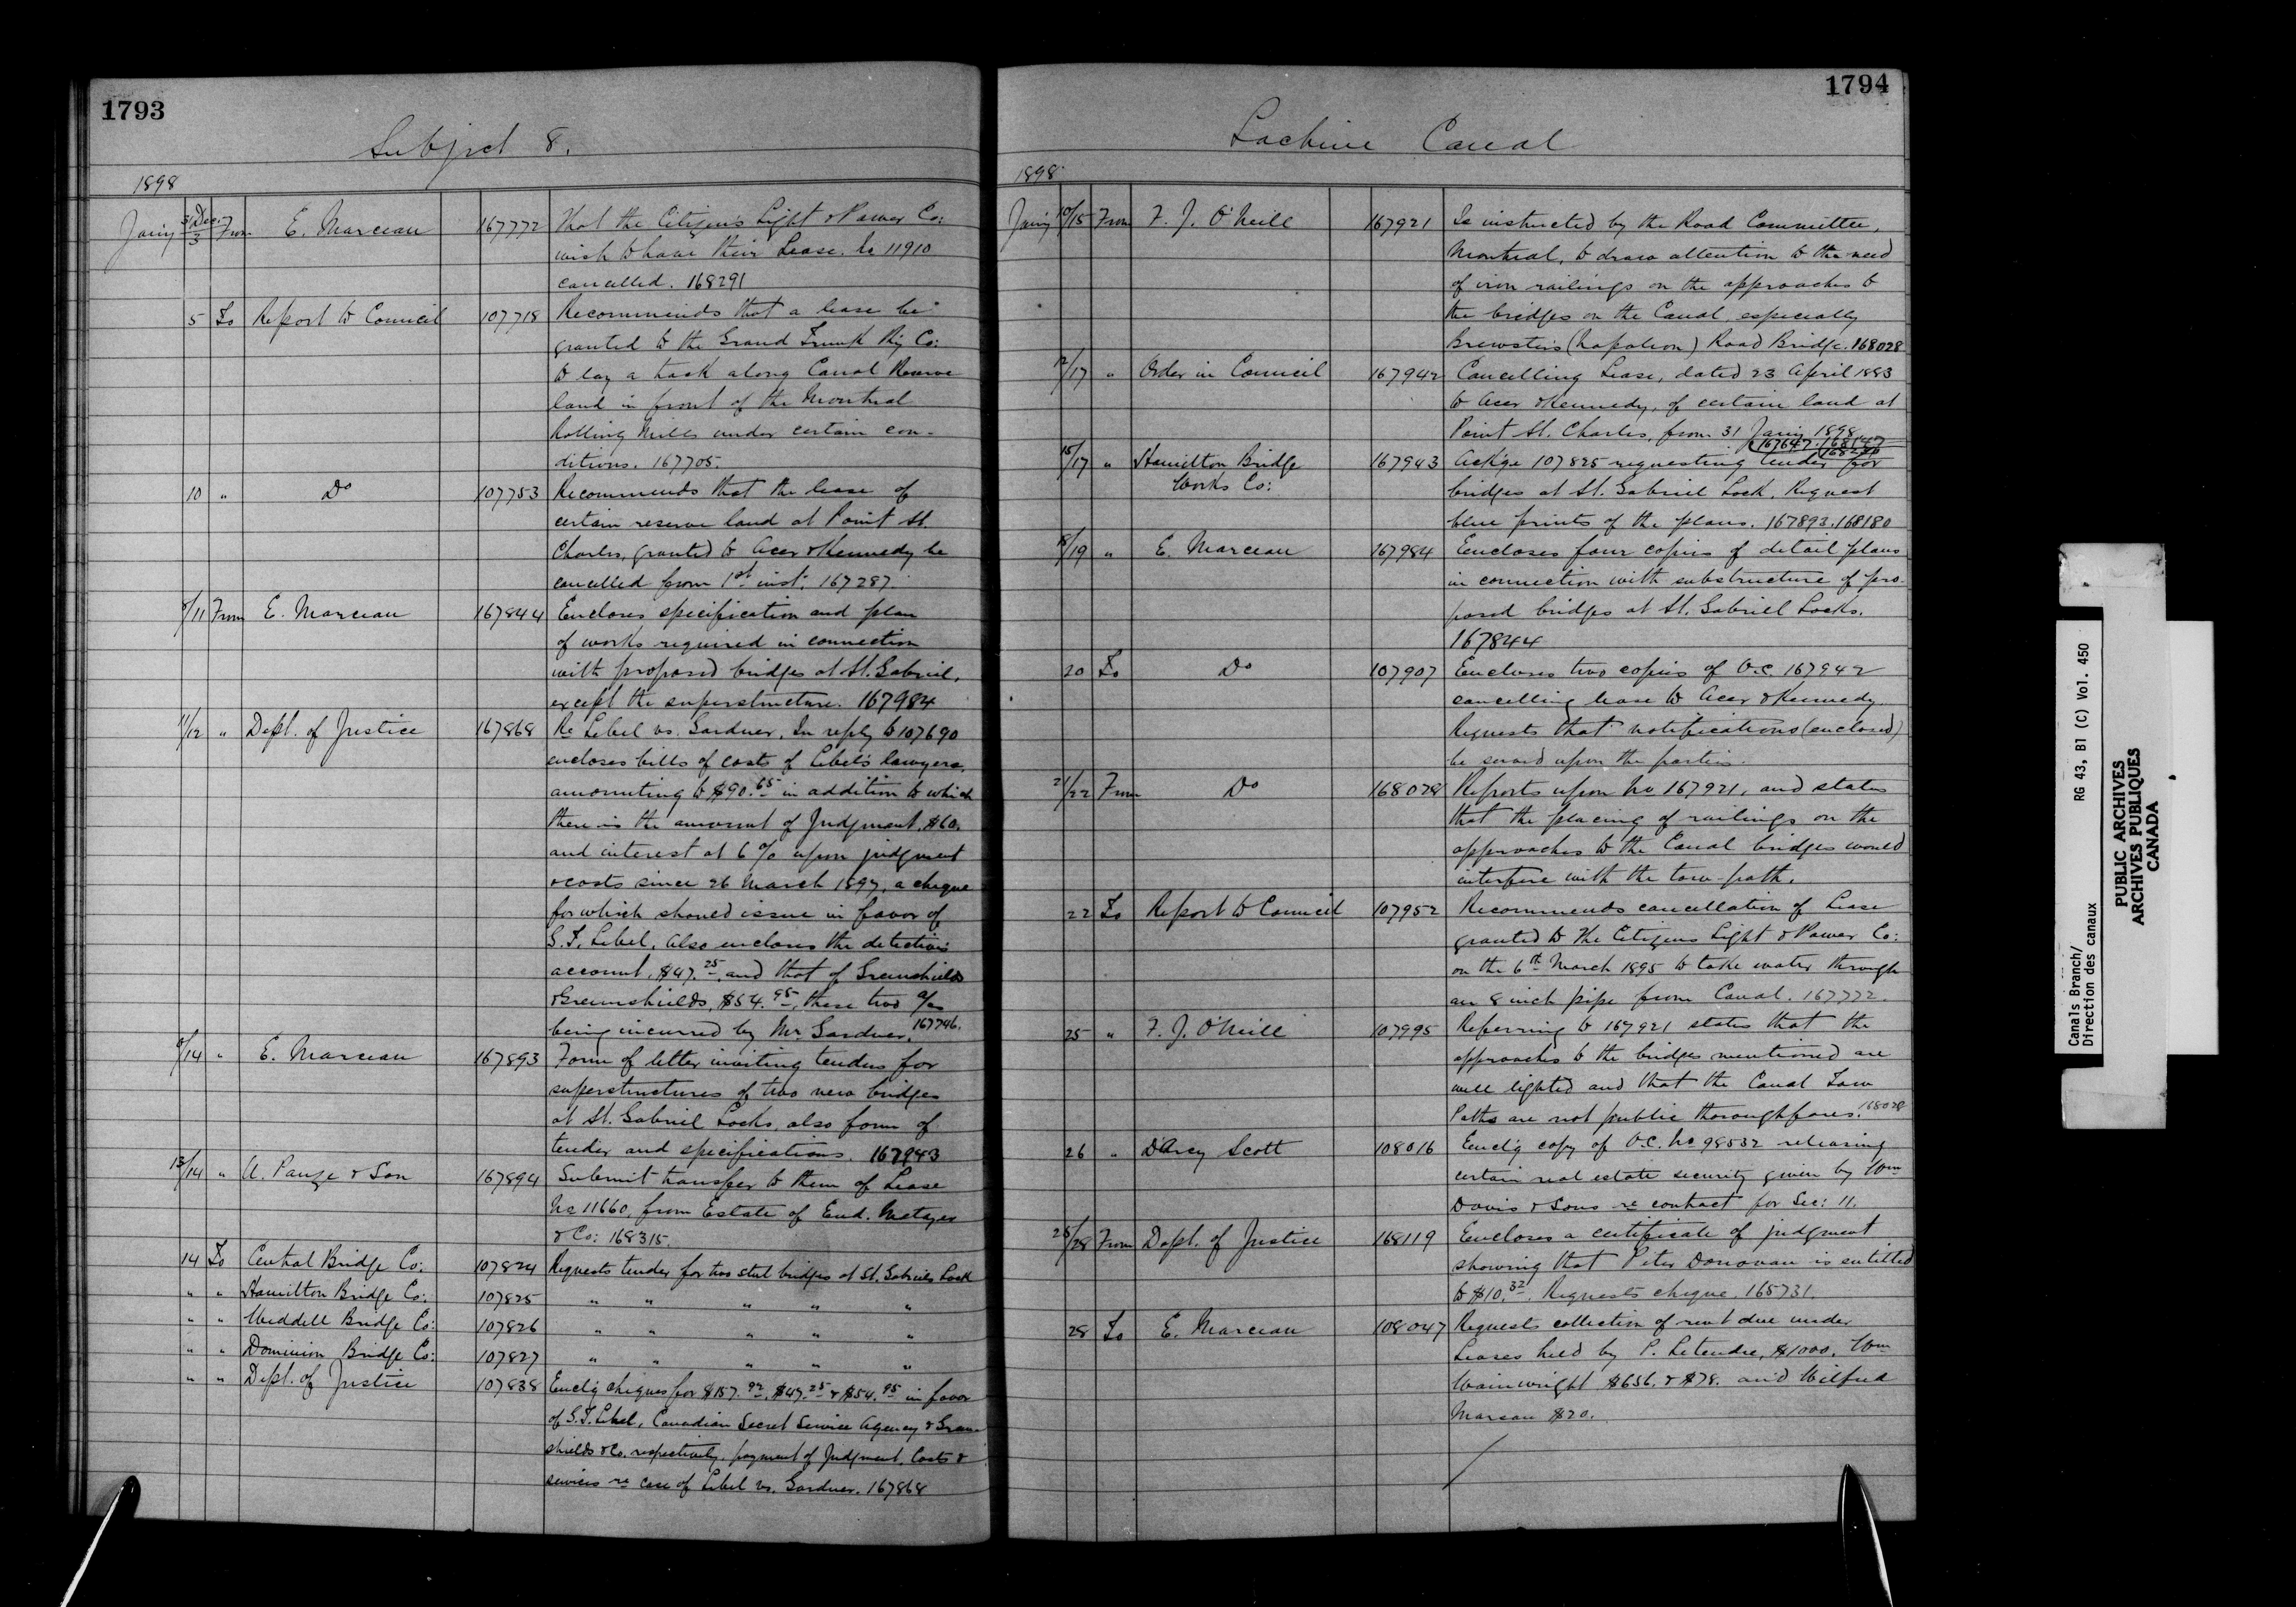 1793
Subject 8.
1898
Jan'y 31 Dec./3 From E. Marceau 167772 That the Citizen's Light & Power Co:
wish to have their Lease No 11910
cancelled. 168291
5 To Report to Council 107718 Recommends that a lease be
granted to the Grand Trunk Ry Co:
to lay a track along Canal Reserve
land in front of the Montreal
Rolling Mills under certain con-
ditions. 167705.
10 " Do 107753 Recommends that the lease of
certain reserve land at Point St.
Charles, granted to Acer & Kennedy be
cancelled from 1st inst. 167287
8/11 From E. Marceau 167844 Encloses specification and plan
of works required in connection
with proposed bridges at St. Gabriel,
except the superstructure. 167984
11/12 " Dept. of Justice 167868 Re Lebel vs. Gardner, In reply to 107690
encloses bills of costs of Lebel's lawyers,
amounting to $90.65 in addition to which
there is the amount of Judgment, $60.
and interest at 6% upon judgment
& costs since 26 March 1897, a cheque
for which should issue in favor of
G. T. Lebel. Also encloses the detectives
account, $47.25, and that of Greenshields
& Greenshields, $54.95, these two a/cs
being incurred by Mr. Gardner. 167746.
8/14 " E. Marceau 167893 Form of letter inviting tenders for
superstructures of two new bridges
at St. Gabriel Locks, also form of
tender and specifications. 167943
13/14 " A. Pauze & Son 167894 Submit transfer to them of Lease
No 11660, from Estate of Eud. Metayer
& Co: 168315.
14 To Central Bridge Co: 107824 Requests tender for two steel bridges at St. Gabriel Lock
" " Hamilton Bridge Co: 107825 " " " " "
" " Weddell Bridge Co: 107826 " " " " "
" " Dominion Bridge Co: 107827 " " " " "
" " Dept. of Justice 107838 Encl'g cheques for $157.92, $47.25 & $54.95 in favor
of G. T. Lebel, Canadian Secret Service Agency & Green-
shields & Co. respectively, payment of Judgment, Costs &
services re case of Lebel vs. Gardner. 167868
1794
Lachine Canal
1898
Jan'y 10/15 From F. J. O'Neill 167921 Is instructed by the Road Committee,
Montreal, to draw attention to the need
of iron railings on the approaches to
the bridges on the Canal, especially
Brewster's (Napoleon) Road Bridge. 168028
12/17 " Order in Council 167942 Cancelling Lease, dated 23 April 1883
to Acer & Kennedy, of certain land at
Point St. Charles, from 31 Jan'y 1898
167647. 168147
15/17 " Hamilton Bridge 167943 Ack'ge 107825 requesting tender for
Works Co: bridges at St. Gabriel Lock. Request
blue prints of the plans. 167893. 168180
18/19 " E. Marceau 167984 Encloses four copies of detail plans
in connection with substructure of pro-
posed bridges at St. Gabriel Locks.
167844
20 To Do 107907 Encloses two copies of O.C. 167942
cancelling lease to Acer & Kennedy.
Requests that notifications (enclosed)
be served upon the parties.
21/22 From Do 168028 Reports upon No 167921, and states
that the placing of railings on the
approaches to the Canal bridges would
interfere with the tow-path.
22 To Report to Council 107952 Recommends cancellation of Lease
granted to the Citizens Light & Power Co:
on the 6th March 1895 to take water through
an 8 inch pipe from Canal. 167772.
25 " F. J. O'Neill 107995 Referring to 167921 states that the
approaches to the bridges mentioned are
well lighted and that the Canal Tow
Paths are not public thoroughfares. 168028
26 " D'Arcy Scott 108016 Encl'g copy of O.C. No 98532 releasing
certain real estate security given by Wm
Davis & Sons re contract for Sec: 11.
28 From Dept. of Justice 168119 Encloses a certificate of judgment
showing that Peter Donovan is entitled
to $10.32. Requests cheque. 165731.
28 To E. Marceau 108047 Requests collection of rent due under
Leases held by P. Letendre, $1000. Wm
Wainwright $656. & $78. and Wilfred
Marsan $20.
Canals Branch/
Direction des canaux
RG 43, B1 (C) Vol. 450
PUBLIC ARCHIVES
ARCHIVES PUBLIQUES
CANADA